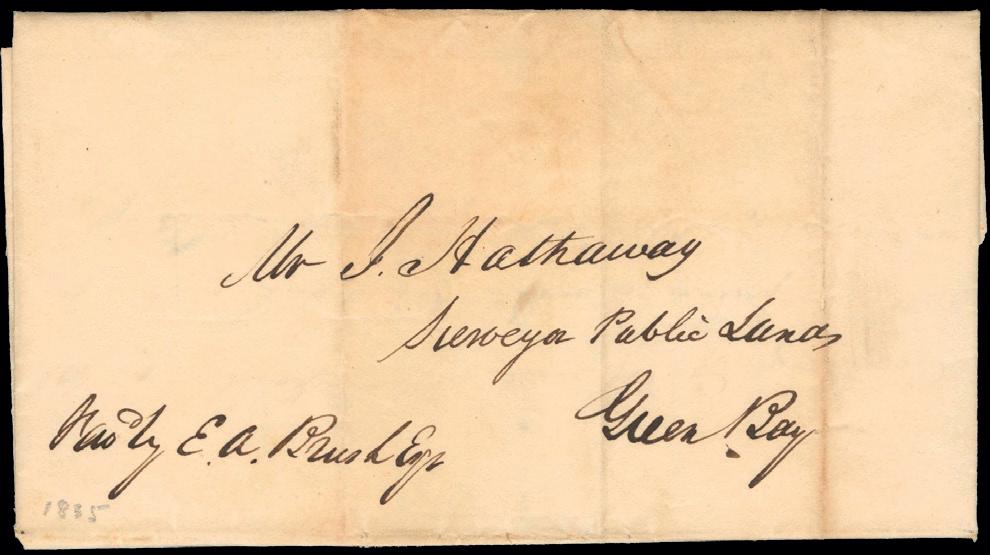 Mr J. Hathaway
Surveyor Public Lands
Green Bay
Favd by E. A. Brush Esqr
1835